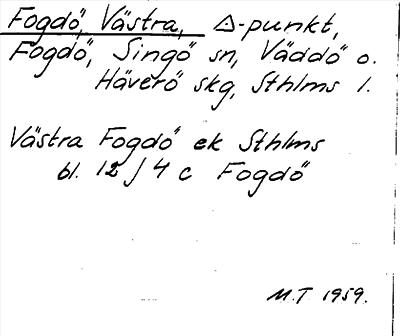 Fogdö, Västra, △-punkt,
Fogdö, Singö sn, Väddö o.
Häverö skg, Sthlms l.
Västra Fogdö ek Sthlms
bl. 12 J 4 c Fogdö
M.T. 1959.